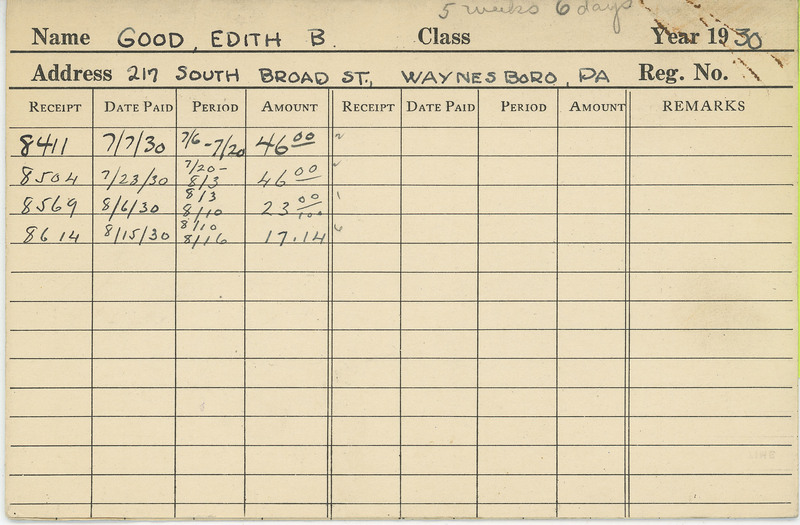 5 weeks 6 days
Name GOOD, EDITH B. Class Year 1930
Address 217 SOUTH BROAD ST., WAYNESBORO, PA Reg. No.
RECEIPT DATE PAID PERIOD AMOUNT RECEIPT DATE PAID PERIOD AMOUNT REMARKS
8411 7/7/30 7/6-7/20 46 00
8504 7/23/30 7/20-8/3 46 00
8569 8/6/30 8/3 8/10 23 00/100
8614 8/15/30 8/10 8/16 17.14